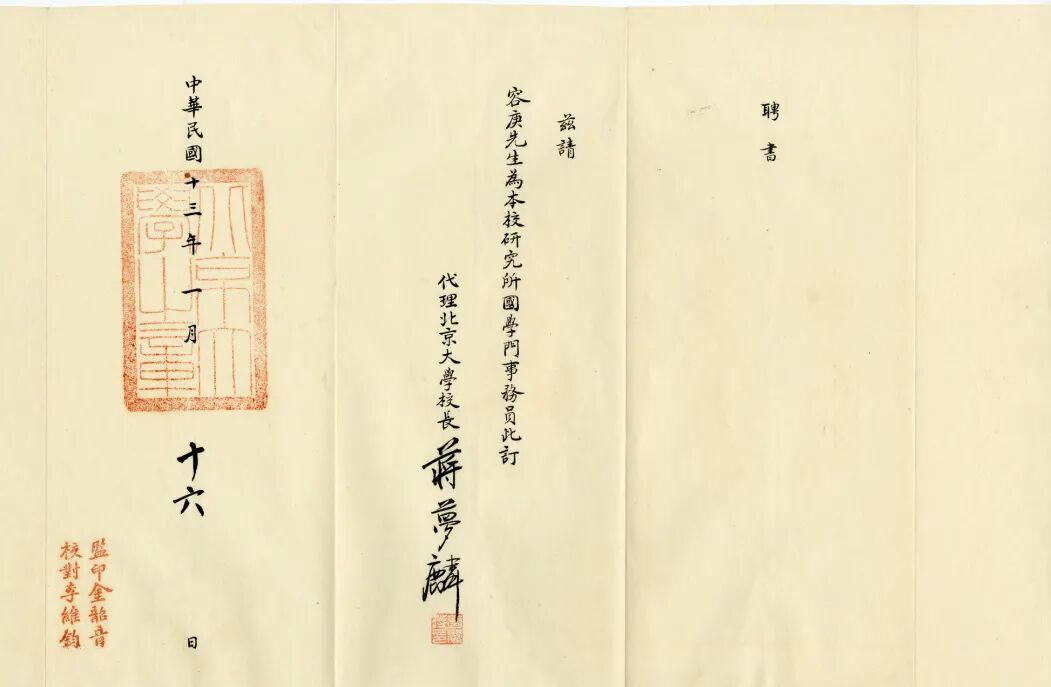 聘書
兹請
容庚先生為本校研究所國學門事務員此訂
代理北京大學校長 蔣夢麟
中華民國十三年一月十六日
北京大
學之章
監印金韶音
核對李維鈞